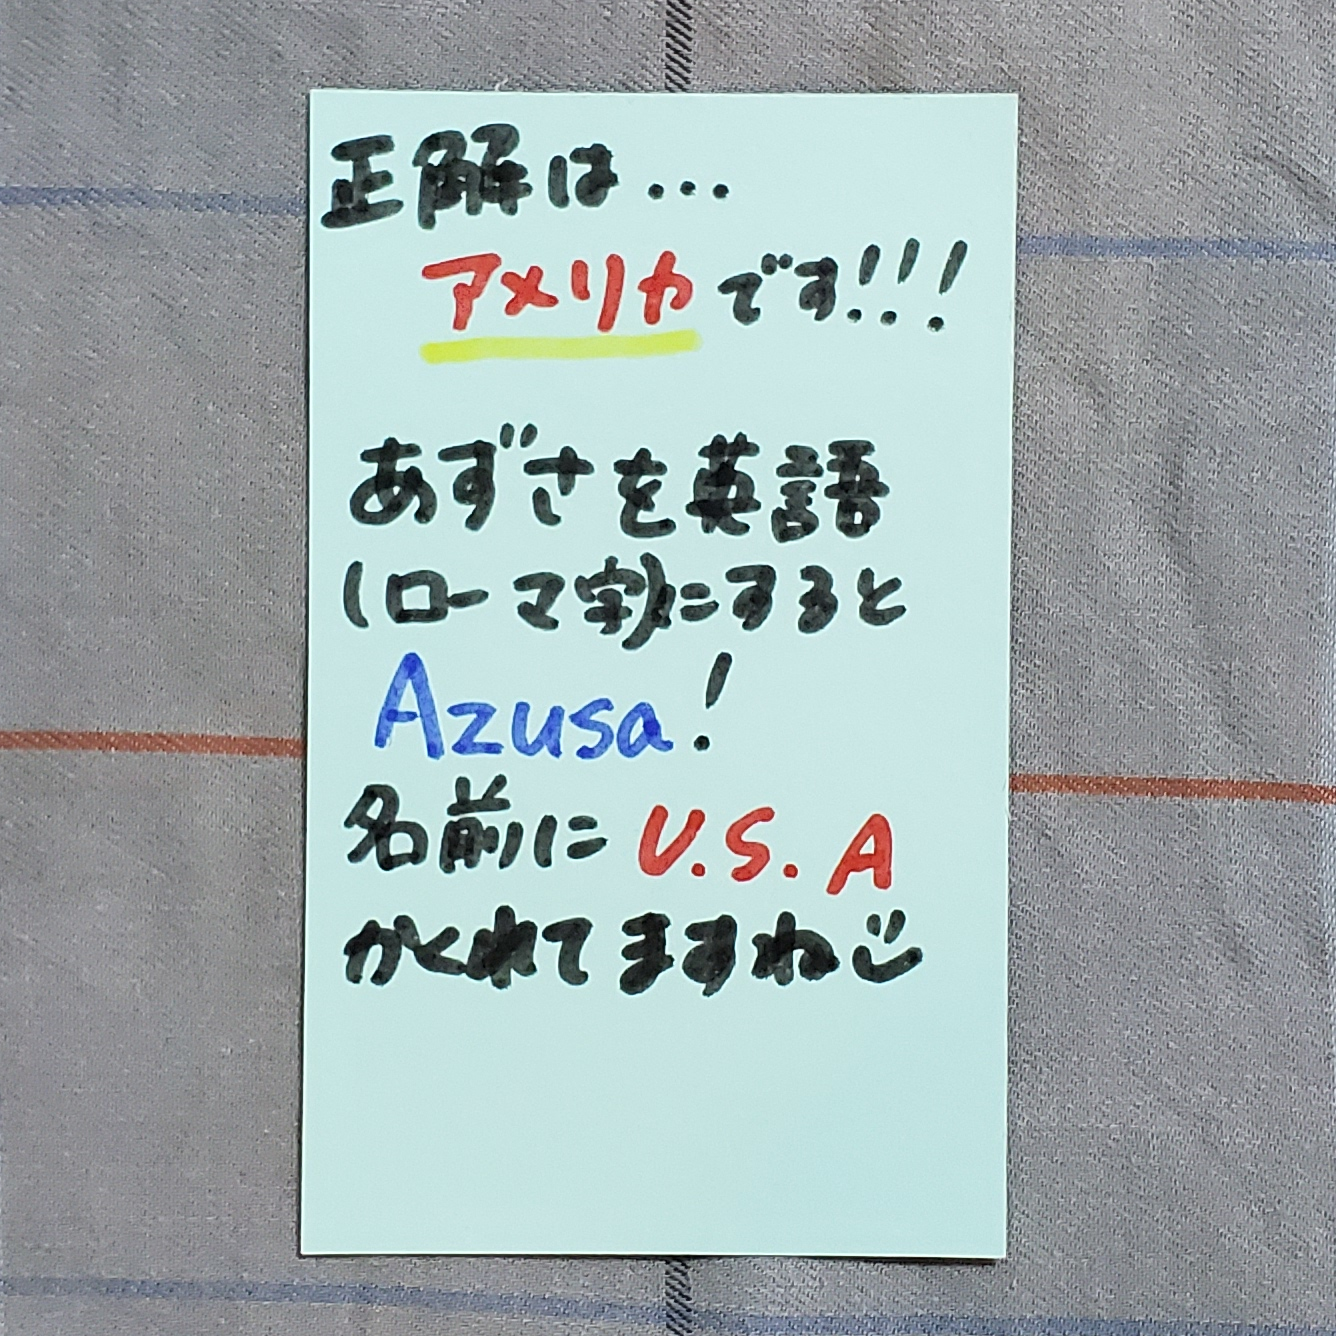 正解は...
アメリカです!!!
あずさを英語
(ローマ字)にすると
Azusa!
名前にU.S.A
かくれてますね